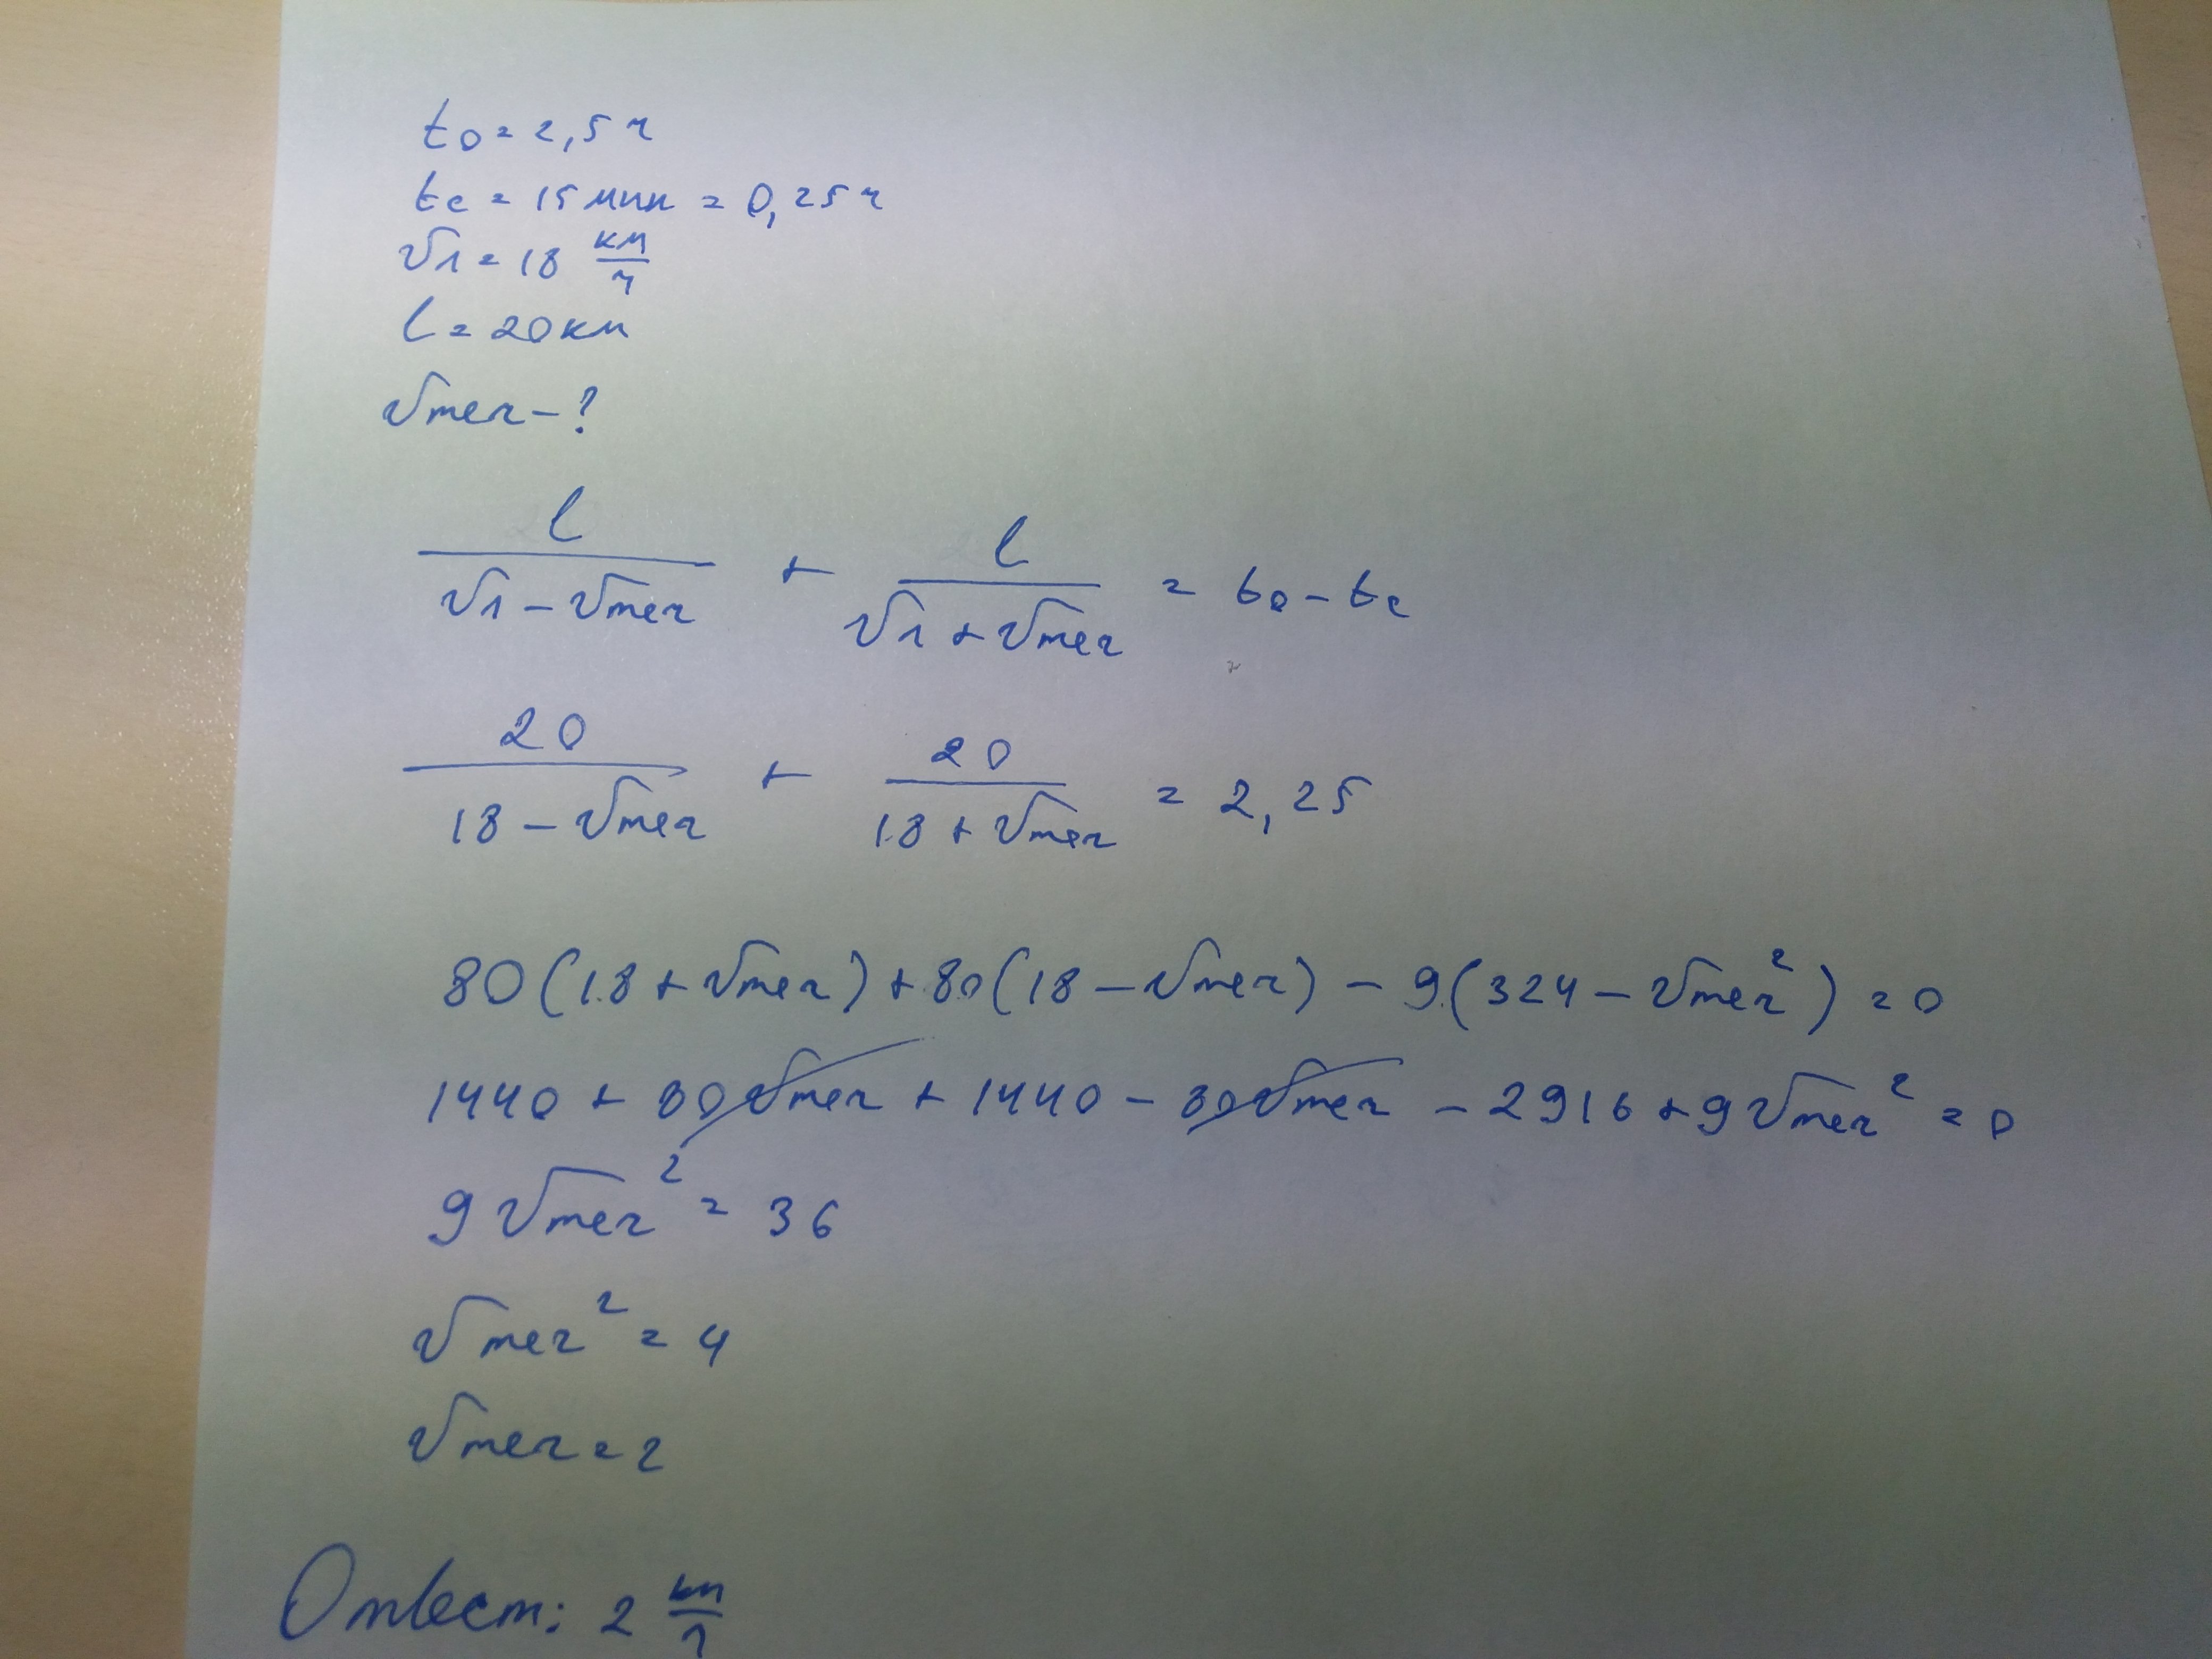 t₀ = 2,5 ч
tс = 15 мин = 0,25 ч
v₁ = 18 км/ч
l = 20 км
vтеч - ?
l/(v₁ - vтеч) + l/(v₁ + vтеч) = t₀ - tс
20/(18 - vтеч) + 20/(18 + vтеч) = 2,25
80(18 + vтеч) + 80(18 - vтеч) - 9(324 - vтеч²) = 0
1440 + 80vтеч + 1440 - 80vтеч - 2916 + 9vтеч² = 0
9vтеч² = 36
vтеч² = 4
vтеч = 2
Ответ: 2 км/ч